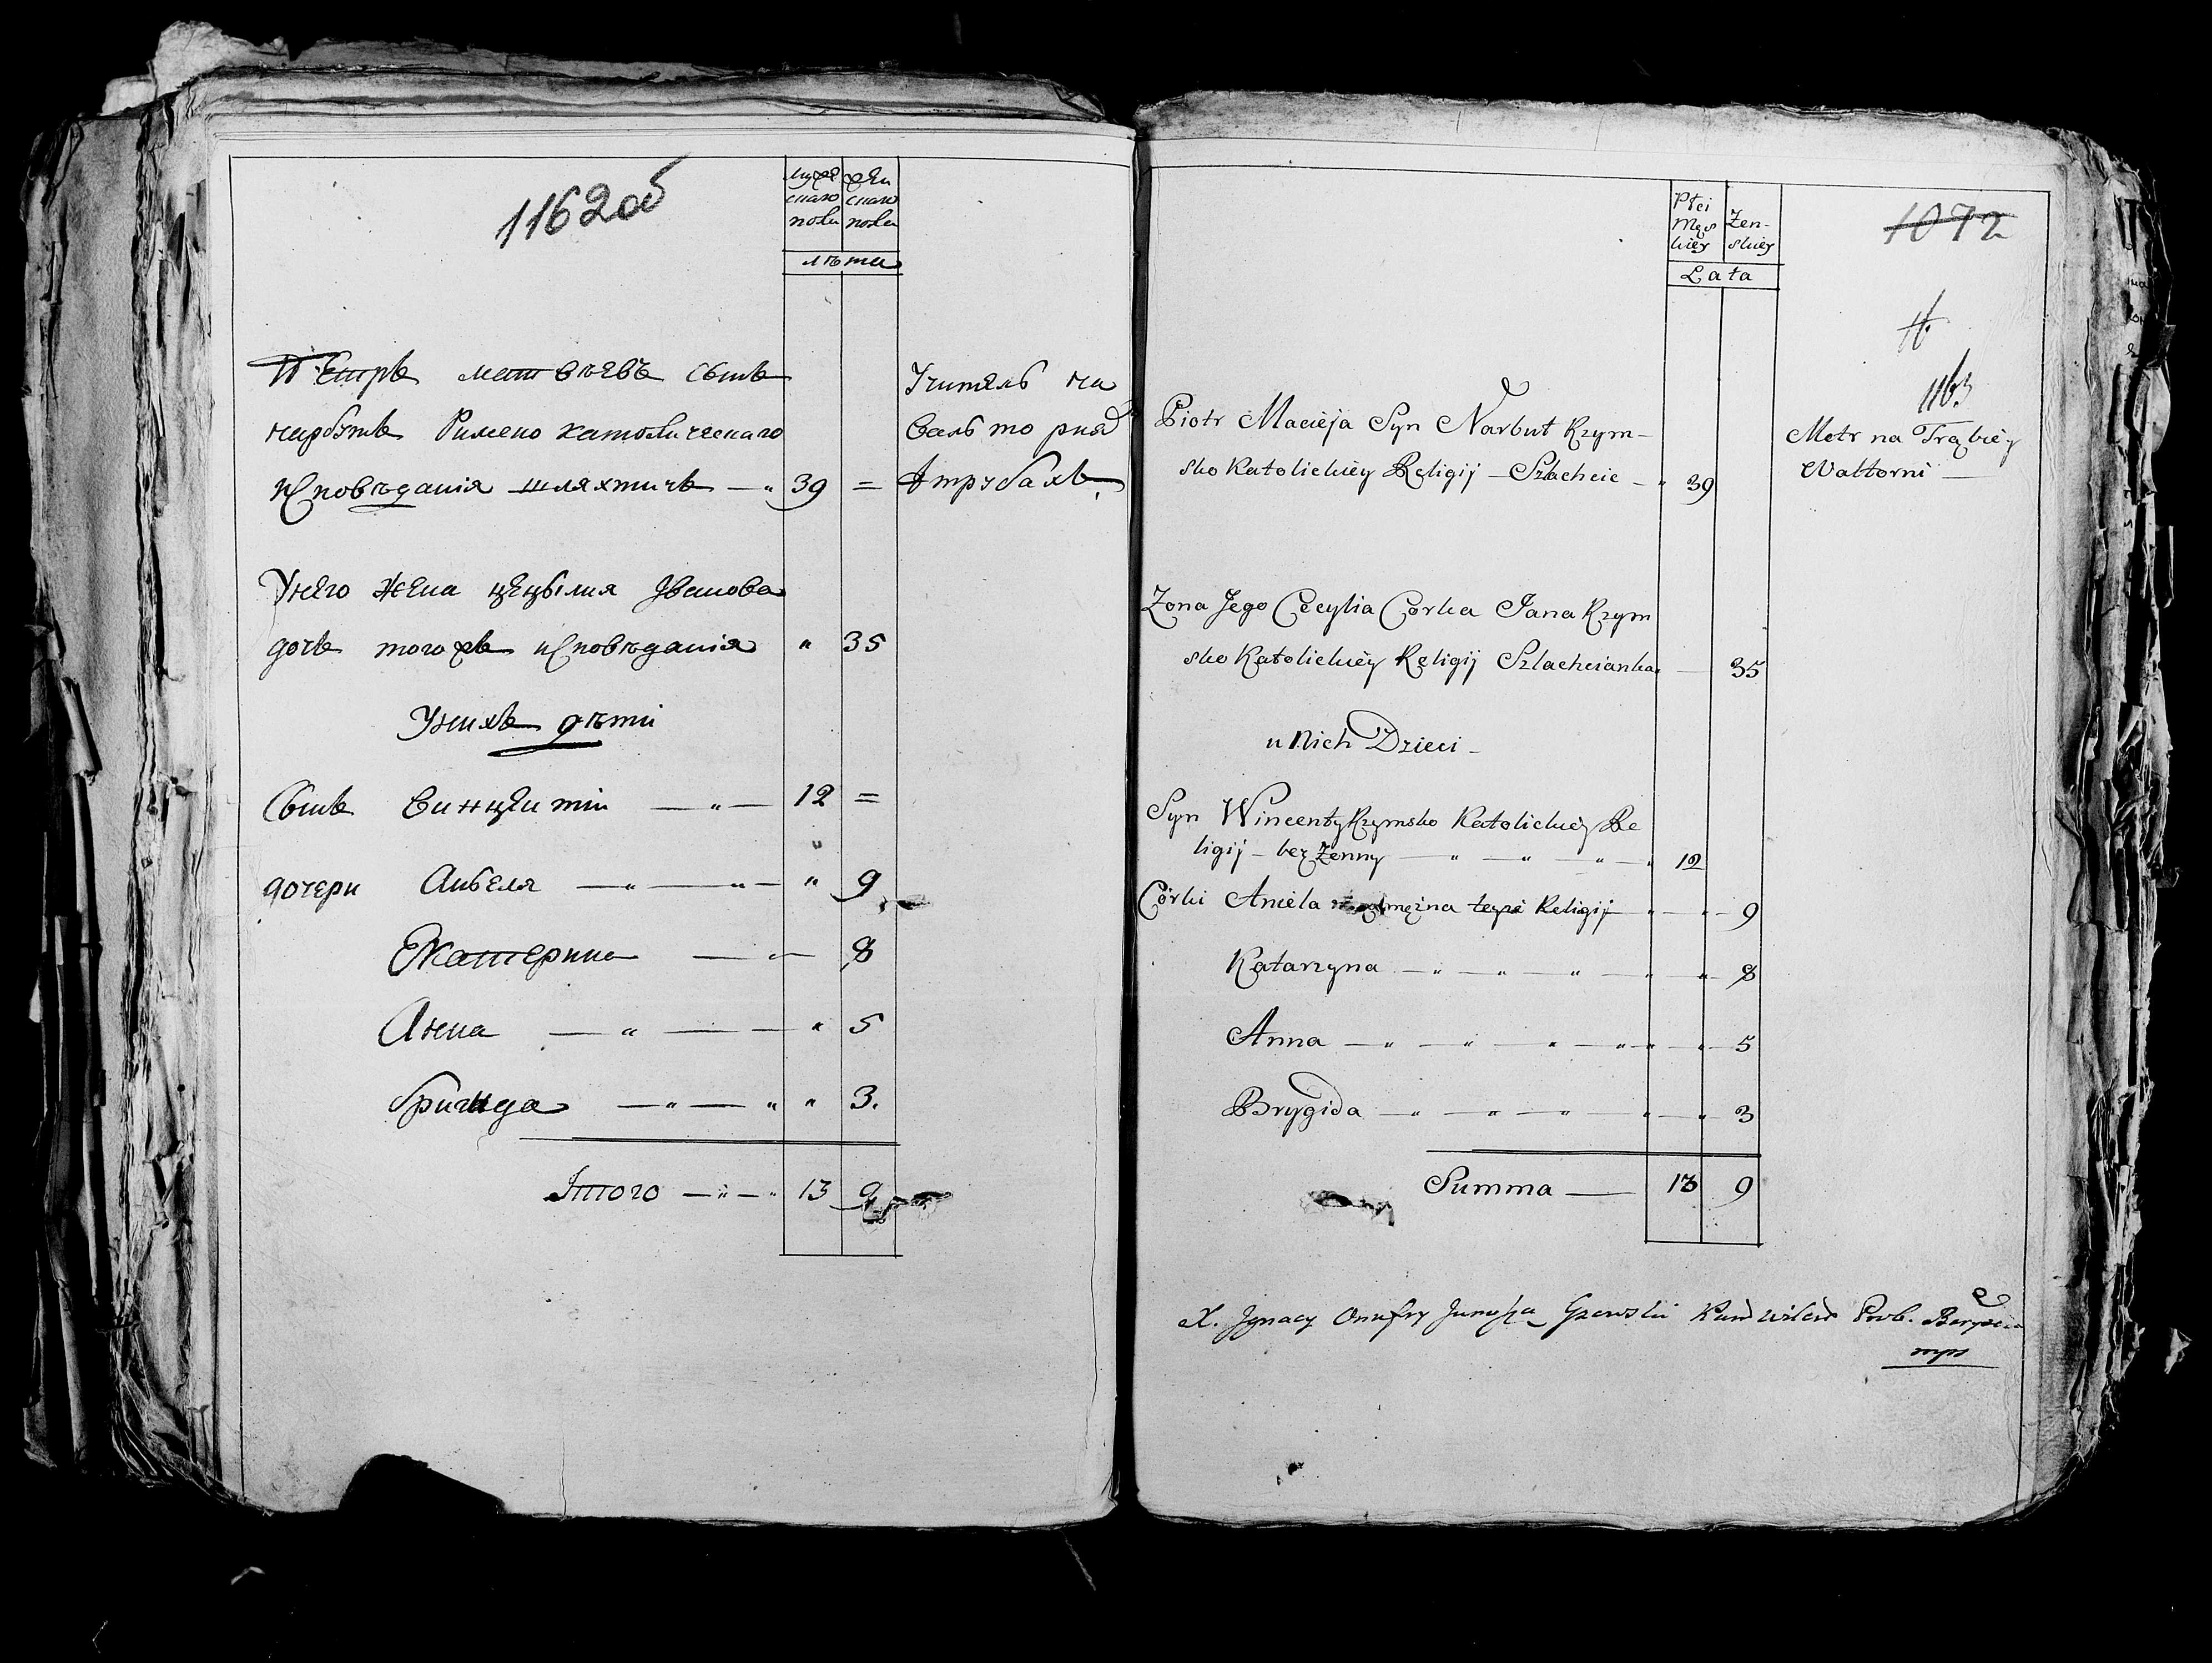 1162об
муже
скаго
пола
жен
скаго
пола
лѣта
Петръ матвѣевъ сынъ
нарбутъ Римско католическаго
исповѣданія шляхтичъ — „ 39 =
Учитель на
валь то рна
трубахъ
Унего жена цецылия Иванова
дочь тогожъ исповѣданія „ 35
Унихъ дѣти
Сынъ винценти — „ — 12 =
дочери Анеля — „ — „ — „ 9
Екатерина — „ — 8
Анна — „ — „ 5
бригида — „ — „ „ 3.
Итого — „ — „ 13 9
Płci
Męs
kiey
Żen-
skiey
Lata
1072
1163
Piotr Macieja Syn Narbut Rzym-
sko Katolickiey Religij — Szlachcic — „ 39
Metr na Trąbiey
Waltorni —
Zona Jego Cecylia Corka Jana Rzym
sko Katolickiey Religij Szlachcianka — 35
u Nich Dzieci —
Syn Wincenty Rzymsko Katolickiey Re
ligij — bez Żenny — „ — „ — „ — „ 12
Córki Aniela mężna teyże Religij — „ — 9
Katarzyna — „ — „ — „ — „ — „ — 8
Anna — „ — „ — „ — „ — „ — „ — 5
Brygida — „ — „ — „ — „ — „ — 3
Summa — 13 9
X. Jgnacy Onufry Kan Wileń Prob.
mps